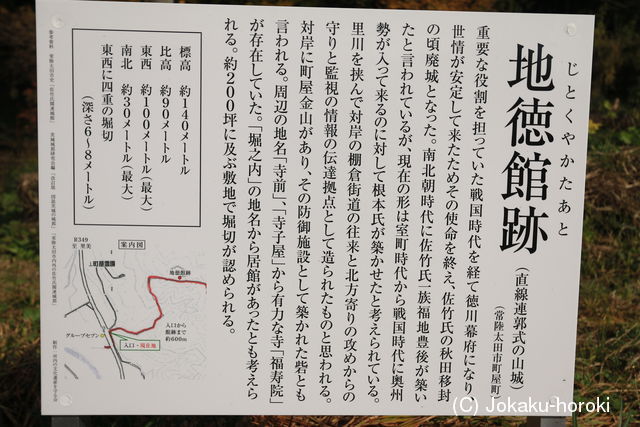 じとくやかたあと
地徳館跡
(直線連郭式の山城)
(常陸太田市町屋町)
重要な役割を担っていた戦国時代を経て徳川幕府になり
世情が安定して来たためその使命を終え、佐竹氏の秋田移封
の頃廃城となった。南北朝時代に佐竹氏一族福地豊後が築い
たと言われているが、現在の形は室町時代から戦国時代に奥州
勢が入って来るのに対して根本氏が築かせたと考えられている。
里川を挟んで対岸の棚倉街道の往来と北方寄りの攻めからの
守りと監視の情報の伝達拠点として造られたものと思われる。
対岸に町屋金山があり、その防御施設として築かれた砦とも
言われる。周辺の地名「寺前」、「寺子屋」から有力な寺「福寿院」
が存在していた。「堀之内」の地名から居館があったとも考えら
れる。約200坪に及ぶ敷地で堀切が認められる。
標高 約140メートル
比高 約90メートル
東西 約100メートル(最大)
南北 約30メートル(最大)
東西に四重の堀切
(深さ6～8メートル)
案内図
R349
至 里美
地徳館跡
入口から
館跡まで
約600m
グループセブン
入口・現在地
(C) Jokaku-horoki